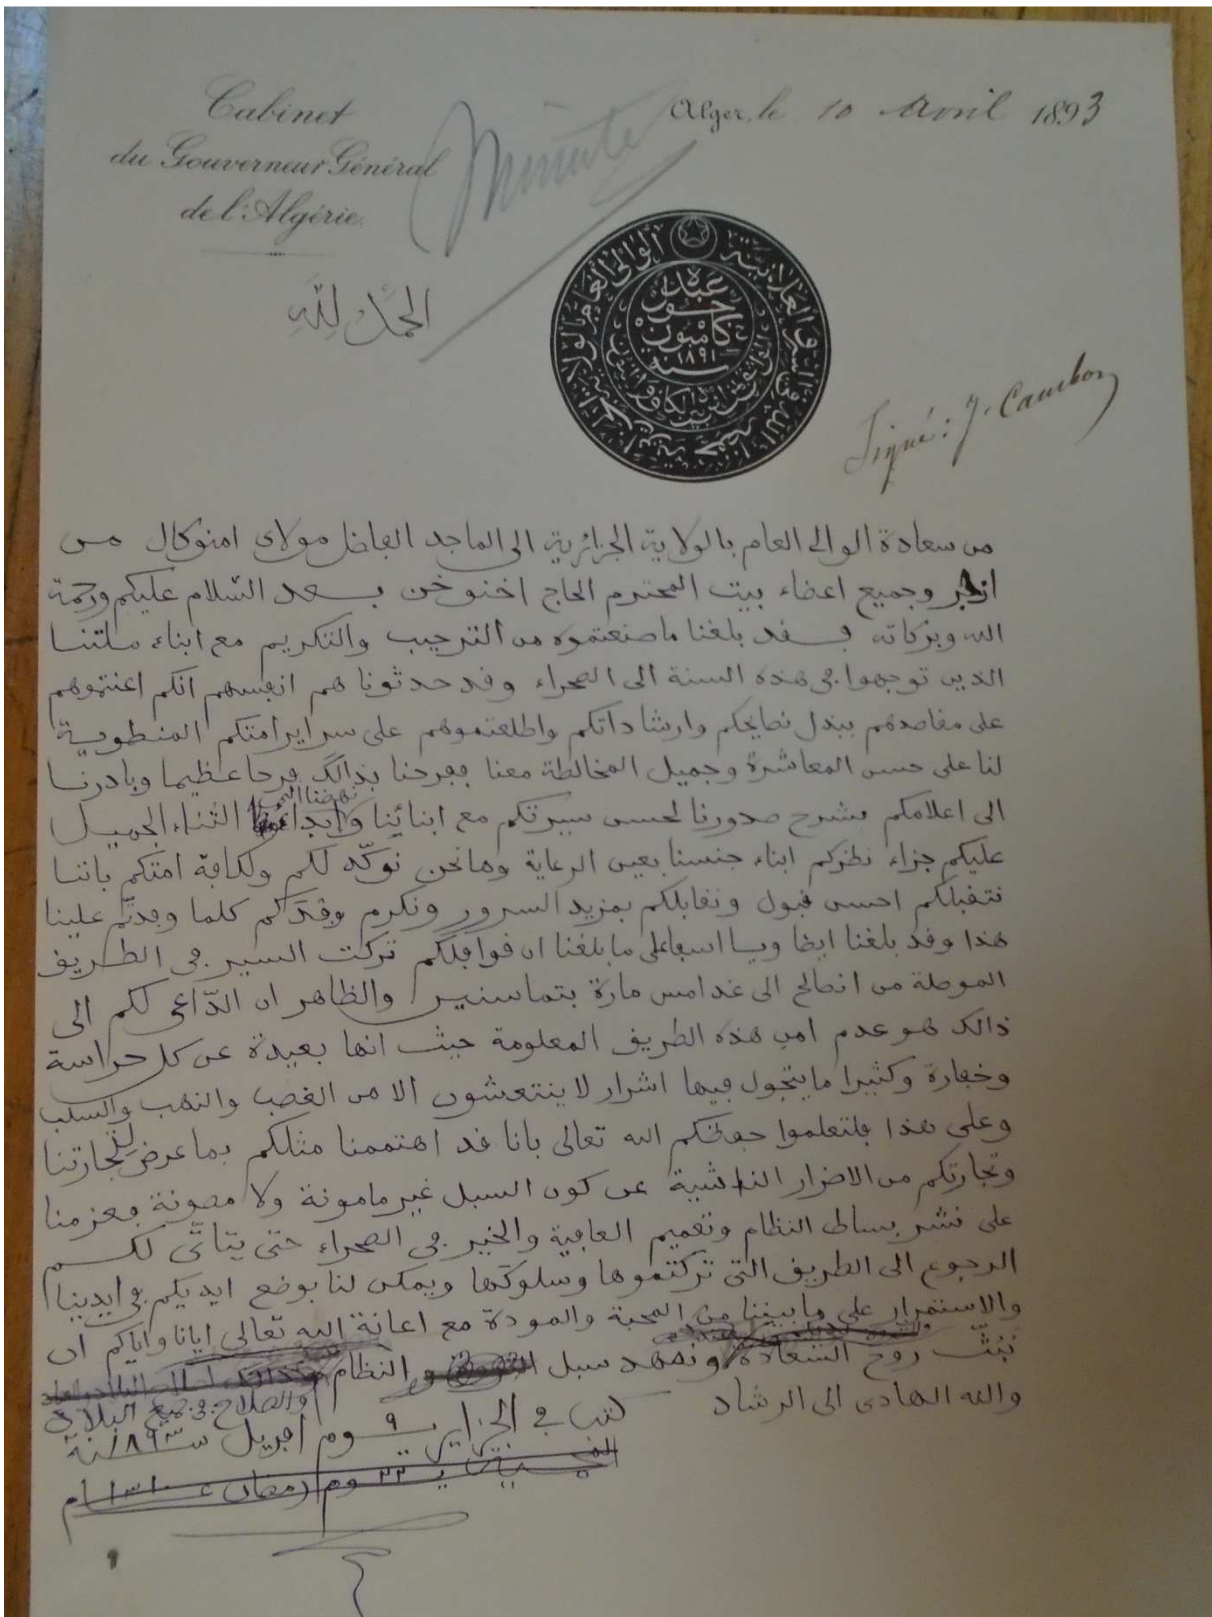 Cabinet
du Gouverneur Général
de l'Algérie.
Minute
Alger, le 10 Avril 1893
الحمد لله
عبده
جول
كامبون
سنة
١٨٩١
Signé: J. Cambon
من سعادة الوالي العام بالولاية الجزائرية الى الماجد الفاضل مولاى امنوكال من
ازجر وجميع اعضاء بيت المحترم الحاج اخنوخن بعد السلام عليكم ورحمة
الله وبركاته فقد بلغنا ما صنعتموه من الترحيب والتكريم مع ابناء ملتنا
الذين توجهوا في هذه السنة الى الصحراء وقد حدثونا هم انفسهم انكم اعنتموهم
على مقاصدهم ببذل نصايحكم وارشاداتكم واطلعتموهم على سراير امتكم المنطوية
لنا على حسن المعاشرة وجميل المخالطة معنا ففرحنا بذالك فرحا عظيما وبادرنا
الى اعلامكم بشرح صدورنا لحسن سيرتكم مع ابنائنا وابداء الثناء الجميل
عليكم جزاء نظركم ابناء جنسنا بعين الرعاية وها نحن نوكّد لكم ولكافة امتكم باننا
نتقبلكم احسن قبول ونقابلكم بمزيد السرور ونكرم وفدكم كلما وفدتم علينا
هذا وقد بلغنا ايضا ويا اسفا على ما بلغنا ان قوافلكم تركت السير في الطريق
الموصلة من انصالح الى غدامس مارة بتماسنين والظاهر ان الدّاعي لكم الى
ذالك هو عدم امن هذه الطريق المعلومة حيث انها بعيدة عن كل حراسة
وخفارة وكثيرا ما يتجول فيها اشرار لا ينتعشون الا من الغصب والنهب والسلب
وعلى هذا فلتعلموا حفظكم الله تعالى بانا قد اهتممنا مثلكم بما عرض لتجارتنا
وتجارتكم من الاضرار الناشية عن كون السبل غير مامونة ولا مصونة فعزمنا
على نشر بساط النظام وتعميم العافية والخير في الصحراء حتى يتاتّى لكم
الرجوع الى الطريق التي تركتموها وسلوكها ويمكن لنا بوضع ايديكم في ايدينا
والاستمرار على ما بيننا من المحبة والمودة مع اعانة الله تعالى ايانا واياكم ان
نبثّ روح السعادة ونمهد سبل والنظام
والصلاح في جميع البلاد
والله الهادى الى الرشاد
كتب في الجزاير يوم ٩ افريل سنة ١٨٩٣